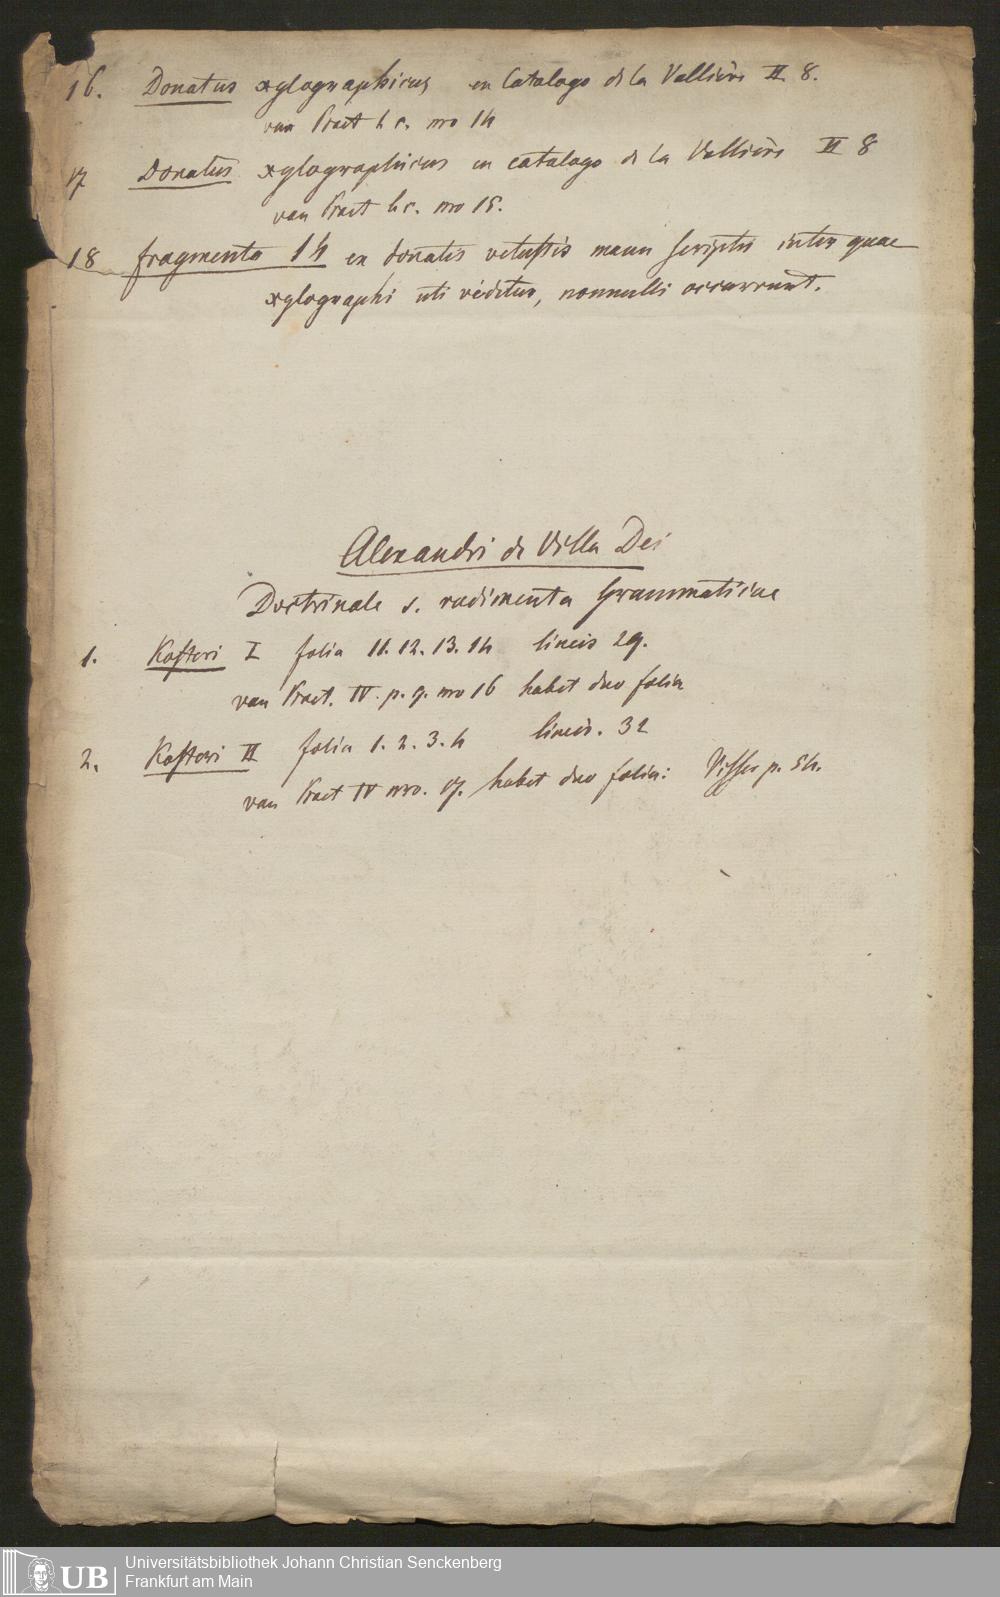 16. Donatus xylographicus in Catalogo de la Valliere II 8.
van Praet l. c. nro 14
17 Donatus xylographicus in catalogo de la Valliere II 8
van Praet l. c. nro 15.
18 fragmenta 14 ex donatis vetustis manu scriptis inter quae
xylographi uti videtur, nonnulli occurrunt.
Alexandri de Villa Dei
Doctrinale s. rudimenta Grammaticae
1. Kosteri I folia 11. 12. 13. 14 lineis 29.
van Praet. IV. p. 9. nro 16 habet duo folia
2. Kosteri II folia 1. 2. 3. 4 lineis. 32
van Praet IV nro. 17. habet duo folia: Visser p. 54.
UB Universitätsbibliothek Johann Christian Senckenberg
Frankfurt am Main